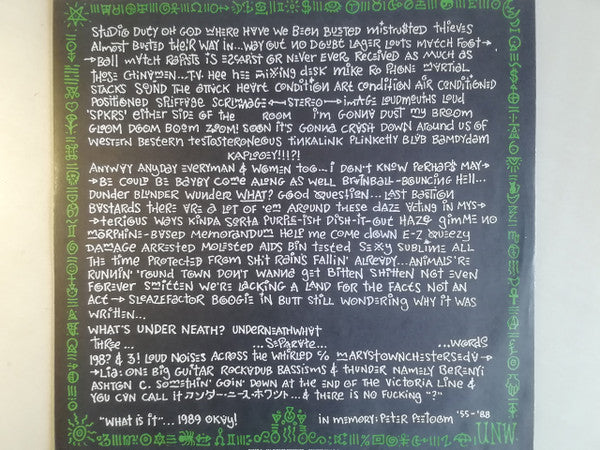 STUDIO DUTY OH GOD WHERE HAVE WE BEEN BUSTED MISTRUSTED THIEVES
ALMOST BUSTED THEIR WAY IN... WAY OUT NO DOUBT LAGER LOUTS MATCH FOOT→
→BALL MATCH RAPISTS IS ESCAPIST OR NEVER EVER RECEIVED AS MUCH AS
THESE CHINAMEN... T.V. HEE HEE MIXING DESK MIKE RO PHONE MARTIAL
STACKS SOUND THE ATTACK HEART CONDITION ART CONDITION AIR CONDITIONED
POSITIONED SPIFFAGE SCRIMMAGE ←STEREO→ IMAGE LOUDMOUTHS LOUD
'SPKRS' EITHER SIDE OF THE ROOM I'M GONNA DUST MY BROOM
GLOOM DOOM BOOM ZOOM! SOON IT'S GONNA CRASH DOWN AROUND US OF
WESTERN BESTERN TESTOSTERONEOUS TINKALINK PLINKETTY BLAB BAMDYDAM
KAPLOOEY!!!?!
ANYWAY ANYDAY EVERYMAN & WOMEN TOO... I DON'T KNOW PERHAPS MAY→
→BE COULD BE BAYBY COME ALONG AS WELL BRAINBALL-BOUNCING HELL...
DUNDER BLUNDER WUNDER WHAT? GOOD QUESTION... LAST BASTION
BASTARDS THERE ARE A LOT OF 'EM AROUND THESE DAZE ACTING IN MYS→
→TERIOUS WAYS KINDA SORTA PURPLE-ISH DISH-IT-OUT HAZE GIMME NO
MORPHINE-BASED MEMORANDUM HELP ME COME DOWN E-Z QUEEZY
DAMAGE ARRESTED MOLESTED AIDS BIN TESTED SEXY SUBLIME ALL
THE TIME PROTECTED FROM SHIT RAIN'S FALLIN' ALREADY... ANIMALS'RE
RUNNIN' 'ROUND TOWN DON'T WANNA GET BITTEN SHITTEN NOT EVEN
FOREVER SMITTEN WE'RE LACKING A LAND FOR THE FACTS NOT AN
ACT → SLEAZEFACTOR BOOGIE IN BUTT STILL WONDERING WHY IT WAS
WRITTEN...
WHAT'S UNDER NEATH? UNDERNEATHWHAT
THREE... ...SEPARATE... ...WORDS
198? & 3! LOUD NOISES ACROSS THE WHIRLED C/O MARYSTOWNCHESTERSEDA→
→LIA: ONE BIG GUITAR ROCKADUB BASSISMS & THUNDER NAMELY BERENYI
ASHTON C. SOMETHIN' GOIN' DOWN AT THE END OF THE VICTORIA LINE &
YOU CAN CALL IT アンダー・ニース・ホワット... & THERE IS NO FUCKING "?"
"WHAT IS IT"... 1989 OKAY!
IN MEMORY: PETER PEETOOM '55-'88
UNW